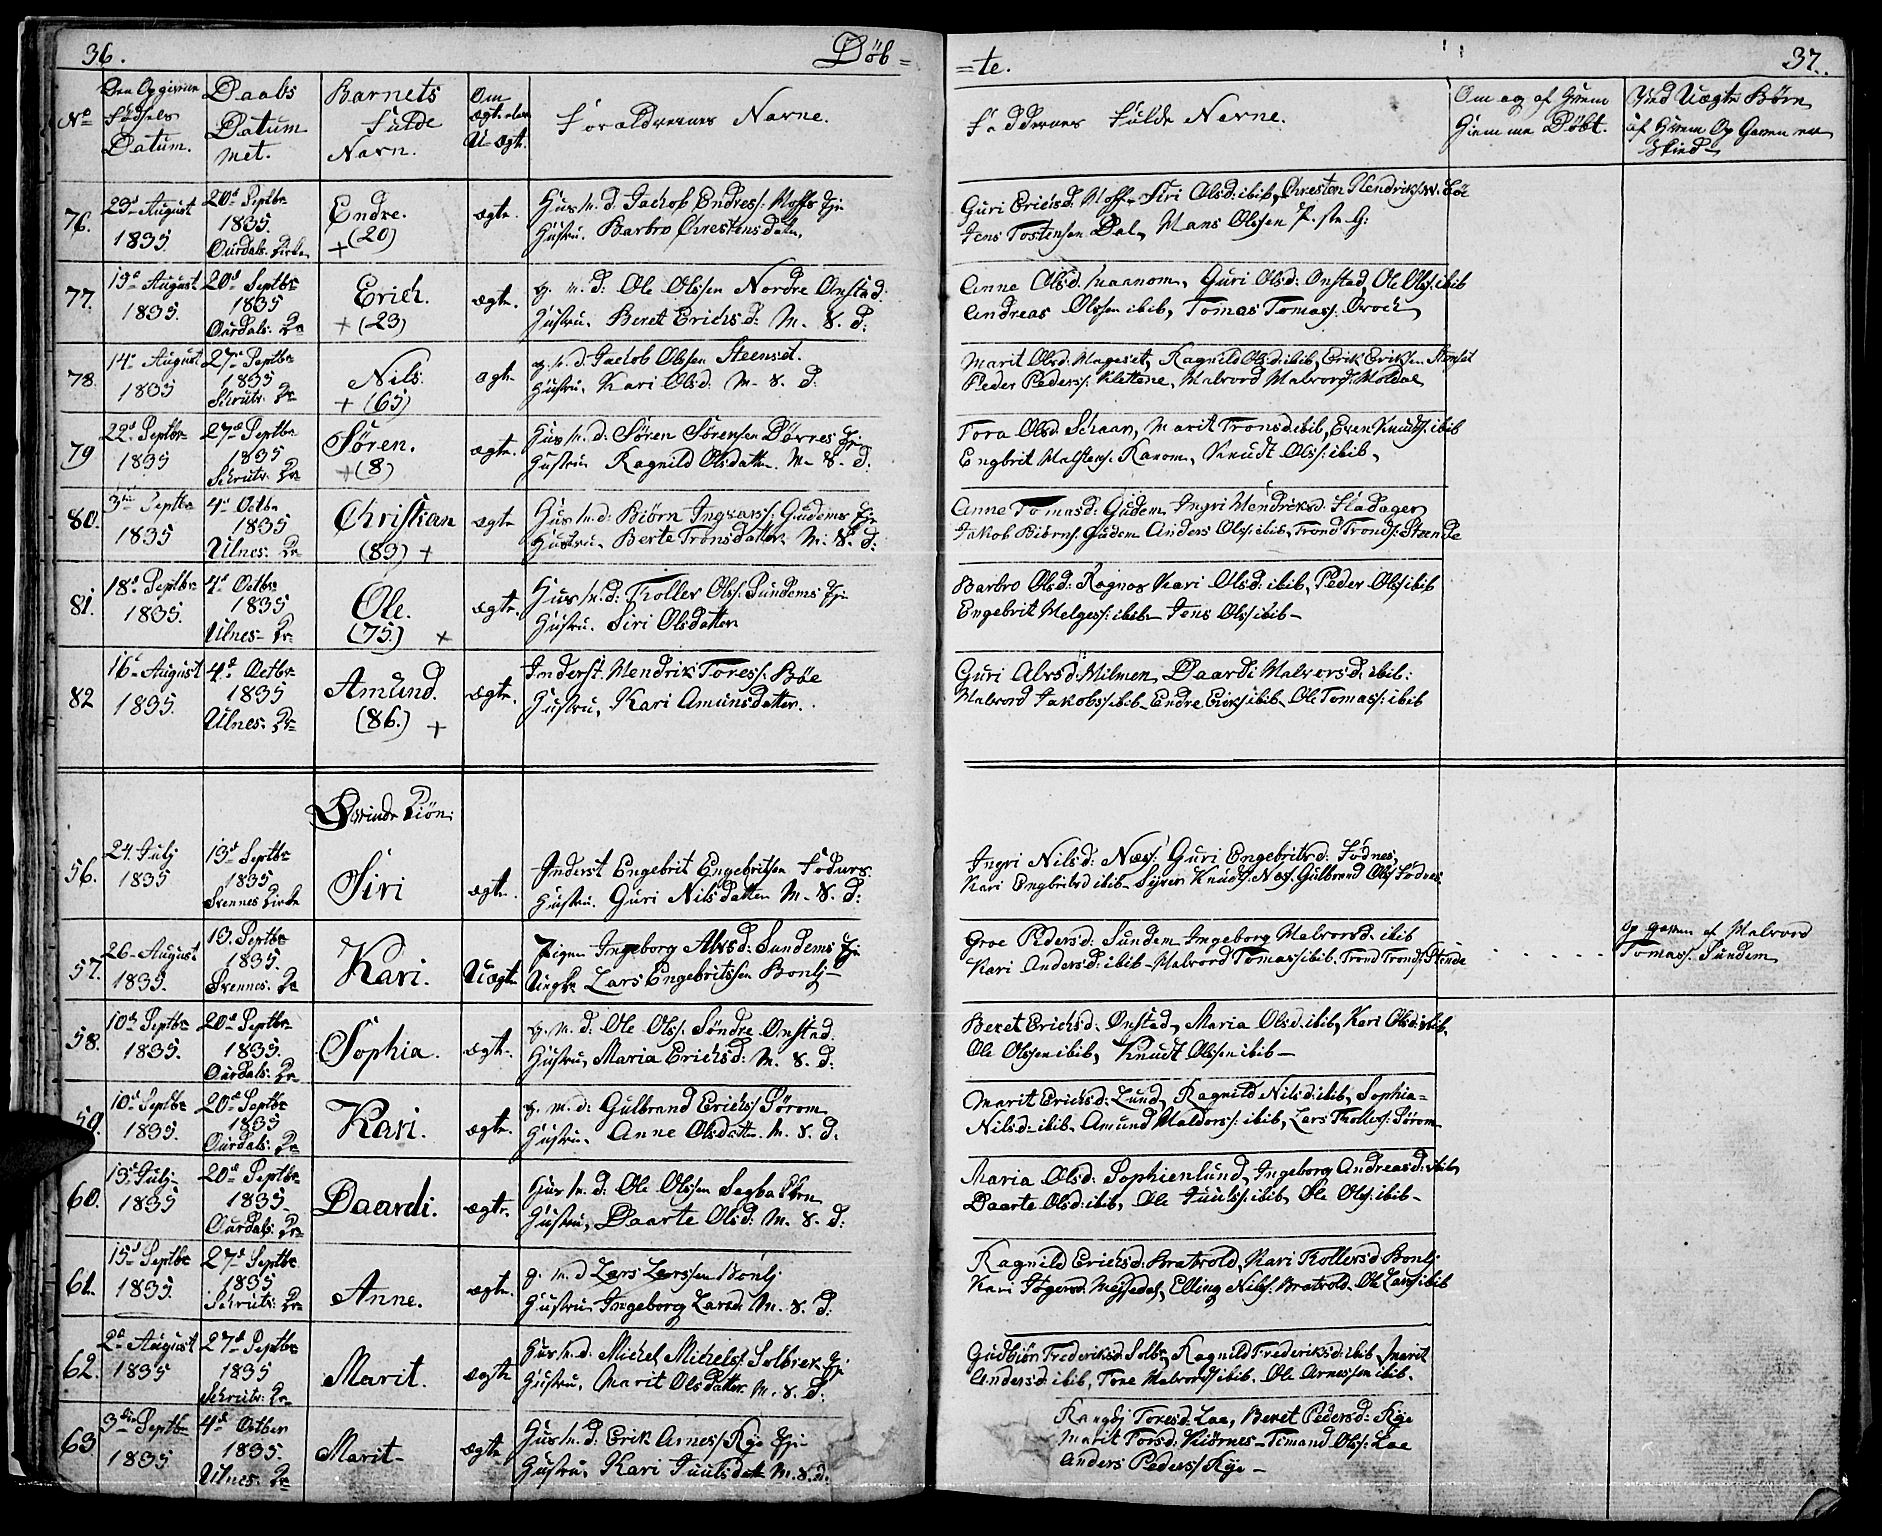 36.
Döb=
=te.
37.
No
Fødsels
Datum.
Daabs
Datum
met.
Barnets
Fulde
Navn.
Om
Ægte eller
U-ægt.
Forældrernes Navne.
Faddernes Fulde Navne.
Døbt.
Uægte Børn
76.
23d August
1835
20d Septbr
1835.
Ourdals. Kirke
Endre.
+(20)
ægte.
Husm. d. Jachob Endres/: Hoffs Eje
Hustru. Barbro Chrestensdatter,
Guri Erichsd. Hoff, Siri Olsd: ibib, Chresten Hendriks/:
Jens Tostensen Dal, Hans Olssen
77.
19d August
1835.
20d Septbr
1835
Ourdals: Ke
Erich.
+(23)
ægte.
g. m. d: Ole Olssen Nordre Onstad:
Hustru. Beret Erichsd: M. 8. d:
Anne Olsd. Guri Olsd: Onstad, Ole Ols/: ibib
Andreas Olssen ibib, Tomas Tomas/:
78.
14d August
1835
27d Septbr
1835
Schrutv: Ke
Nils.
+(65)
ægte.
g. m. d. Jachob Olssen Steenset.
Hustru, Kari Olsd. M. 8. d:
Marit Olsd. Hageset, Ragnild Olsd: ibib, Erik Eriksen
Peder Peders/: Klettene, Halvord Halvords/:
79
22d Septbr
1835
27d Septbr
1835
Schrutv: Ke
Søren.
+(8)
ægte.
Husm. d: Søren Sørensen Eje
Hustru Ragnild Olsdatter. M. 8. d.
Tora Olsd. Marit Tronsd. ibib, Even Knuds/: ibib
Engbrit Halstens/: Ranom, Knudt Ols/: ibib,
80.
3die Septbr
1835
4d Octbr
1835
Ulnes: Ke
Christian
(89) +
ægte
Husm. d: Biørn Ingvars/: Gudems Eje
Hustru. Berte Tronsdatter. M. 8. d:
Anne Tomasd: Gudem, Ingri Hendriksd. Fladager,
Jakob Biørns/: Gudem Anders Ols/: ibib, Trond Tronds/:
81.
18d Septbr
1835.
4d Octbr
1835
Ulnes- Ke
Ole.
(75.) +
ægte.
Husm. d: Troller Ols/: Sundems Eje
Hustru. Siri Olsdatter
Barbro Olsd: Kari Olsd: ibib, Peder Ols/: ibib
Engebrit Helges/: ibib- Jens Ols/: ibib-
82
16d August
1835.
4d Octbr
1835
Ulnes. Ke
Amund.
(86.) +
ægte.
Inderst. Hendrik Tores/: Bøe
Hustru, Kari Amunsdatter.
Guri Alvsd: Daardi Halvorsd: ibib:
Halvord Jakobs/: ibib- Endre Eriks/: ibib- Ole Tomas/: ibib
Qvinde Kiøn:
56.
24. Julj
1835
13d Septbr
1835
Svennes Kirke
Siri
ægte.
Inderst Engebrit Engebritsen
Hustru. Guri Nilsdatter M. 8. d:
Ingri Nilsd: Næs/: Guri Engebritsd: Fødnes,
Kari Engbritsd ibib- Knuds/: Næs, Gulbrand Ols/: Fødnes
57.
26- August
1835.
13. Septbr
1835.
Svennes. Ke
Kari.
Uægte
Pigen Ingeborg Alvsd: Sundems Eje
Ungkr Lars Engebritssen Bonlj-
Groe Pedersd: Sundem Ingeborg Halvorsd: ibib
Kari Andersd: ibib- Halvord Tomas/: ibib. Trond Tronds/:
af Halvord
Tomas/: Sundem
58.
10d Septbr
1835.
20d Septbr
1835.
Ourdals: Ke
Sophia.
ægte.
g. m. d: Ole Ols/: Søndre Onstad.
Hustru, Maria Erichsd: M. 8. d:
Beret Erichsd: Onstad, Maria Olsd: ibib, Kari Olsd: ibib.
Ole Olssen ibib, Knudt Olssen ibib-
59.
10d Septbr
1835.
20d Septbr
1835
Ourdals: Ke
Kari.
ægte.
g. m. d: Gulbrand Erichs/: Sörom
Hustru. Anne Olsdatter. M. 8. d:
Marit Erichsd: Lund, Ragnild Nilsd: ibib, Sophia=
Nilsd: ibib, Amund Haldors/: ibib, Lars Tholles/: Sörom
60.
13d Julj-
1835
20d Septbr
1835.
Ourdals: Ke
Daardi.
ægte.
Husm. d: Ole Olssen
Hustru, Daarte Olsd: M. 8. d:
Maria Olsd: Sophienlund, Ingeborg Andreasd: ibib,
Daarte Olsd: ibib, Ole Juuls/: ibib, Ole Ols/: ibib-
61.
15d Septbr
1835.
27d Septbr
1835
Schrutv: Ke
Anne.
ægte.
g. m. d Lars Larssen Bonlj
Hustru Ingeborg Larsd: M. 8. d:
Ragnild Erichsd: Bratvold, Kari Trollersd Bonlj
Kari Elling Nils/: Bratvold. Ole Lars/: ibib
62.
2d August
1835
27d Septbr
1835
Schrutv: Ke
Marit.
ægte
Husm. d Michel Michels/: Solbrek Eje
Hustru, Marit Olsdatter M. 8. d:
Gudbiör Frederiksd: Ragnild Frederiksd: ibib, Marit
Andersd: ibib, Tore Halvords/: ibib. Ole Arnessen ibib.
63
3die Septbr
1835
4d Octber
1835.
Ulnes. Ke
Marit-
ægte
Husm. d: Erik Arnes/: Rye Eje
Hustru. Kari Juulsdatter M. 8. d.
Toresd: Loe, Beret Pedersd: Rye
Marit Torsd: Kiørnes- Ols/: Loe
Anders Peders/: Rye-